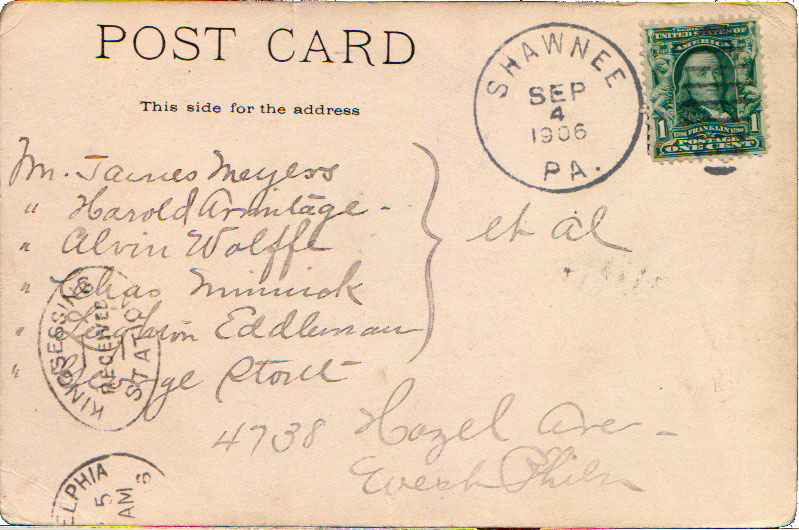 POST CARD
This side for the address
SHAWNEE
SEP
4
1906
PA.
UNITED STATES OF
AMERICA
1 FRANKLIN 1
POSTAGE
ONE CENT
Mr. James Meyers
" Harold Armitage -
" Alvin Wolffe
" Chas Minnick
" Leighton Eddleman
" George Stout
et al
KINGSESSING
RECEIVED
STATION
4738 Hazel Ave -
West Phila
ELPHIA
5
AM